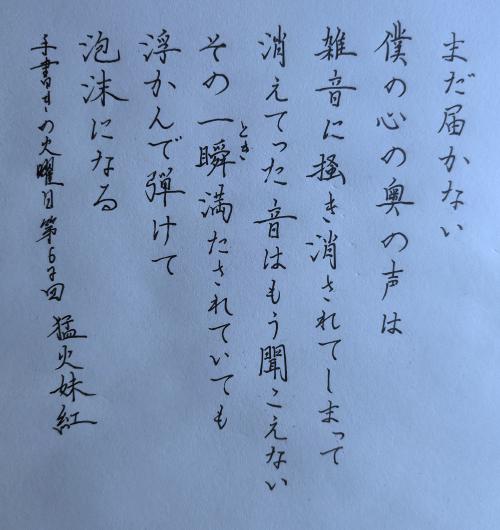 まだ届かない
僕の心の奥の声は
雑音に掻き消されてしまって
消えてった音はもう聞こえない
その一瞬満たされていても
とき
浮かんで弾けて
泡沫になる
手書きの火曜日第67回 猛火妹紅